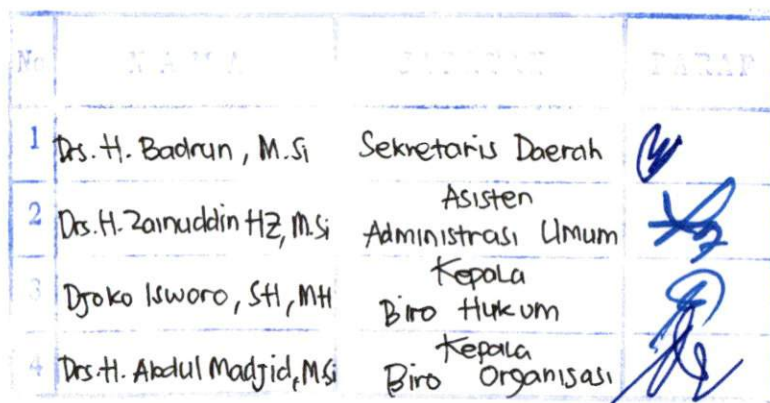 No NAMA JABATAN PARAF
1 Drs. H. Badrun, M.Si Sekretaris Daerah
2 Drs. H. Zainuddin HZ, M.Si Asisten
Administrasi Umum
3 Djoko Isworo, SH, MH Kepala
Biro Hukum
4 Drs. H. Abdul Madjid, M.Si Kepala
Biro Organisasi